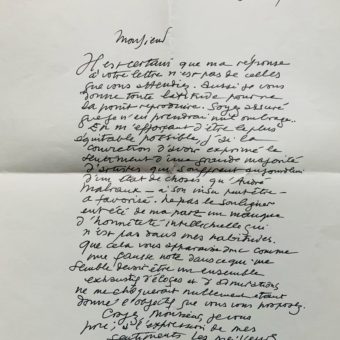 Monsieur
Il est certain que ma réponse
à votre lettre n'est pas de celles
que vous attendiez. Aussi je vous
donne toute latitude pour ne
la point reproduire. Soyez assuré
que je n'en prendrai nul ombrage.
En m'efforçant d'être le plus
équitable possible, j'ai la
conviction d'avoir exprimé le
sentiment d'une grande majorité
d'artistes qui souffrent aujourd'hui
d'un état de choses qu'André
Malraux — à son insu peut-être —
a favorisé. Ne pas le souligner
eut été de ma part un manque
d'honnêteté intellectuelle qui
n'est pas dans mes habitudes.
Que cela vous apparaisse donc comme
une fausse note dans ce qui me
semble devoir être un ensemble
exhaustif d'éloges et d'admirations,
ne me choquerait nullement étant
donné l'objectif que vous vous proposez.
Croyez, Monsieur, je vous
prie, à l'expression de mes
sentiments les meilleurs